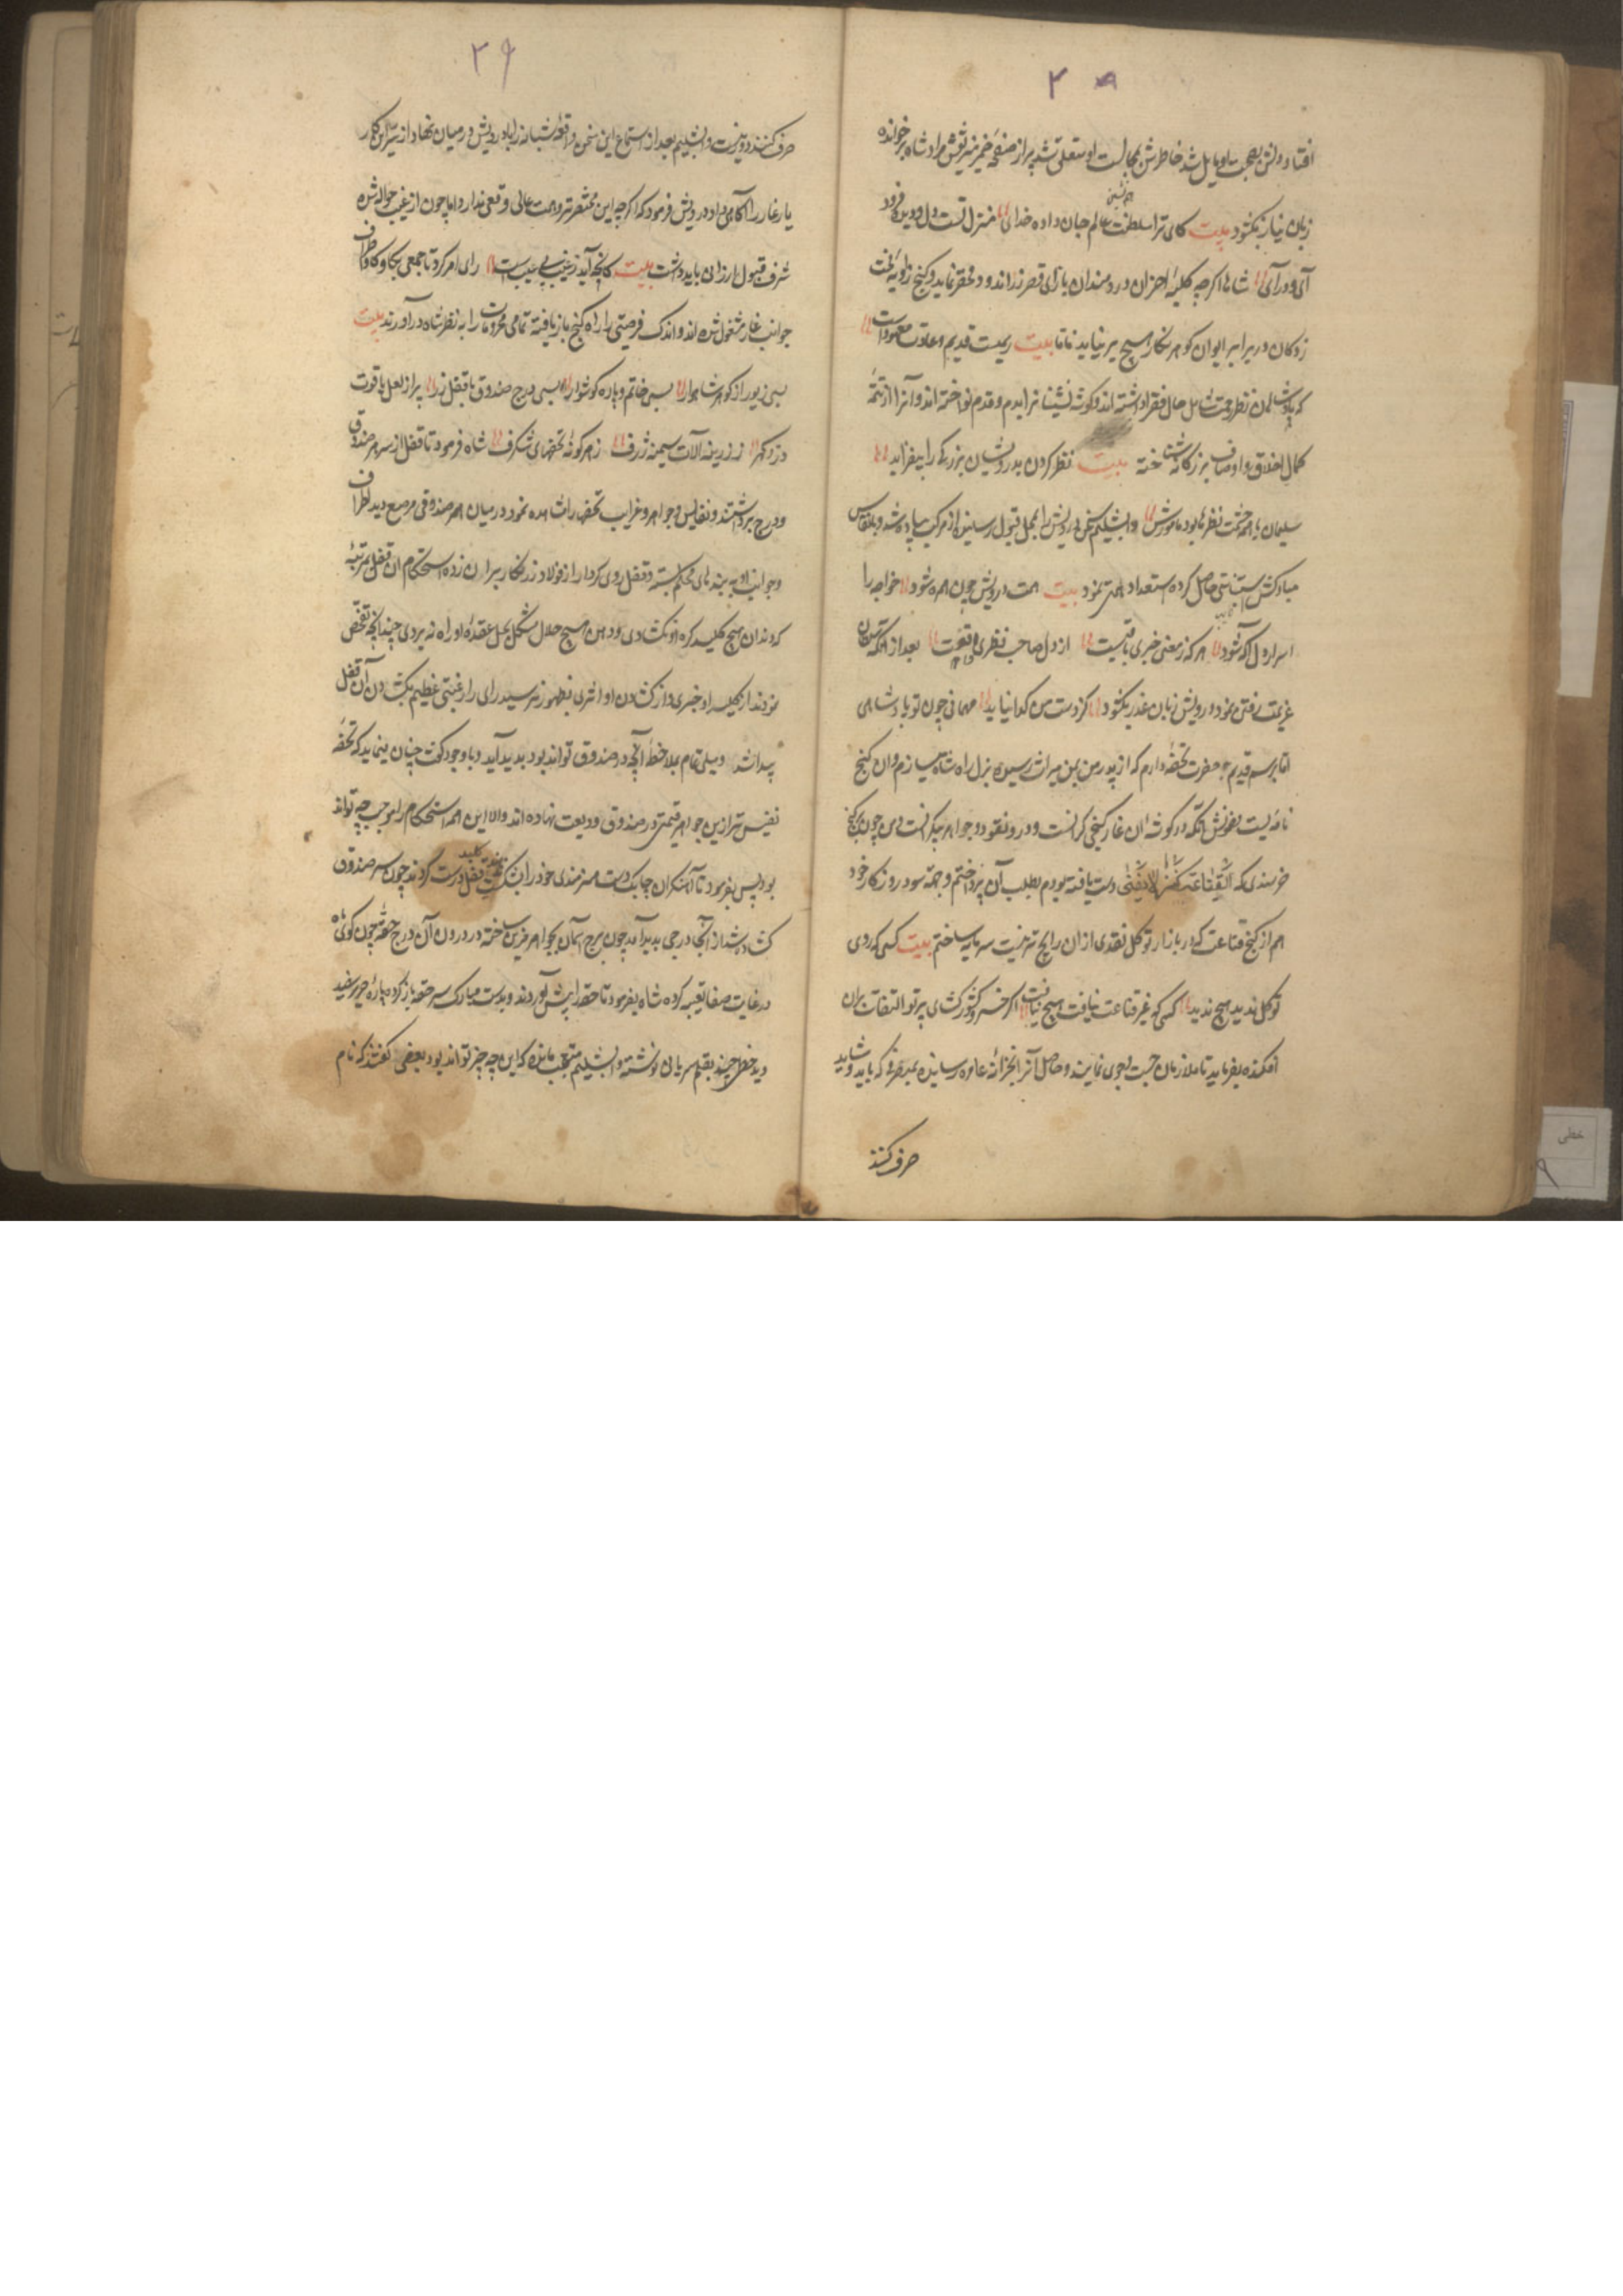 ۳۸
افتاد و دلش بصحبت او مایل شد خاطرش بمجالست او متعلق شد پیر از صفحه ضمیر منیرش نقش مراد شاه برخوانده
زبان نیاز بگشود بیت کای ترا سلطنت عالم جان داده خدای منزل تست دل و دیده فرود
آی و درآی شاها اگرچه کلبه احزان دردمندان بازای قصر زراندود محقر نماید و کنج زاویه
در برابر ایوان گوهر نگار هیچ برنیاید فاما بیت رسمیست قدیم و عادت معهودست
که پادشاهان نظر رحمت شامل حال فقرا داشته اند و گوشه نشینانرا بدم و قدم نواخته اند و آنرا از تتمه
کمال اخلاق و اوصاف بزرگانه شناخته بیت نظر کردن بدرویشان بزرگی را بیفزاید
سلیمان با همه حشمت نظرها بود با مورش دابشلیم سخن درویش را بمحل قبول رسانیده از مرکب پیاده شد و بانفاس
مبارکش استیناسی حاصل کرده استمداد همتی نمود بیت همت درویش چون همره شود خواجه را
اسرار دل آگه شود هر که ز معنی خبری یافتست از دل صاحب نظری یافتست بعد از آنکه سلطان
عزیمت رفتن نمود درویش زبان عذر بگشود کز دست من گدا نیاید مهمانی چون تو پادشاهی
اما برسم قدیم حضرت تحفه دارم که از پدر من بمن میراث رسیده نزل راه شاه میسازم و آن گنج
نامه ایست مضمونش آنکه در گوشه آن غار گنجی گرانست و درو نقود و جواهر بیکرانست و من چون بگنج
خرسندی که القناعة کنز لا یفنی دست یافته بودم بطلب آن نپرداختم و جهة سود روزگار خود
هم از گنج قناعت که در بازار توکل نقدی از آن رایج تر نیست سرمایه ساختم بیت کسی که روی
توکل ندید هیچ ندید کسی که غیر قناعت نیافت هیچ نیافت اگر خسرو کشورگشای پرتو التفات بران
افکنده بفرماید تا ملازمان جست و جوی نمایند و حاصل آنرا بخزانه عامره رسانیده بمصرفی که باید و شاید
صرف کنند
۳۹
صرف کنند دور نیست دابشلیم بعد از استماع این سخن واقعه شبانه را با درویش در میان نهاد از سر این کار
یار غار را آگاهی داد درویش فرمود که اگرچه این محقر نزد همت عالی وقعی ندارد اما چون از غیب حواله شده
شرف قبول ارزانی باید داشت بیت کانچه آید ز غیب بی عیب است رای امر کرد تا جمعی بکاو کاو اطراف
جوانب غار مشغول شده اند و اندک فرصتی را راه گنج باز یافته تمامی مخزونات را به نظر شاه درآوردند بیت
بسی زیور از گوهر شاهوار بسی خاتم و یاره گوشوار بسی درج صندوق با قفل زر پر از لعل یاقوت
و در و گهر ز زرینه آلات سیمینه ژرف ز هر گونه تحفهای شگرف شاه فرمود تا قفل از سر هر صندوق
و درج برداشتند و نفایس و جواهر و غرایب تحفها را مشاهده نمود در میان همه صندوقی مرصع دید اطراف
و جوانب او به بندهای محکم بسته و قفل رومی کردار از فولاد زرنگار بر آن زده استحکام آن قفل بمرتبه
که دندان هیچ کلید گره او نگشادی و ذهن هیچ حلال مشکل بحل عقده او راه نبردی چندانچه تفحص
نمودند از کلید او خبری و از گشادن او اثری بظهور نرسید رای را رغبتی عظیم بگشادن آن قفل
پیدا شد و میلی تمام بملاحظه آنچه در صندوق تواند بود پدید آید و با وجود گفت چنان مینماید که تحفه
نفیس تر ازین جواهر قیمتی در صندوق ودیعت نهاده اند والا این همه استحکام را موجب چه تواند
بود پس بفرمود تا آهنگران چابک دست هنرمندی خود را بر قفل درست کردند چون سر صندوق
گشاده شد از آنجا درجی پدید آمد چون برج آسمان بجواهر مزین ساخته در درون آن درج حقه چون گوی ماه
در غایت صفا تعبیه کرده شاه بفرمود تا حقه را پیش آوردند و بدست مبارک سر حقه باز کرده پاره حریر سفید
دید خطی چند بقلم سریانی نوشته دابشلیم متعجب مانده که این چه چیز تواند بود بعضی گفتند که نام
خطی